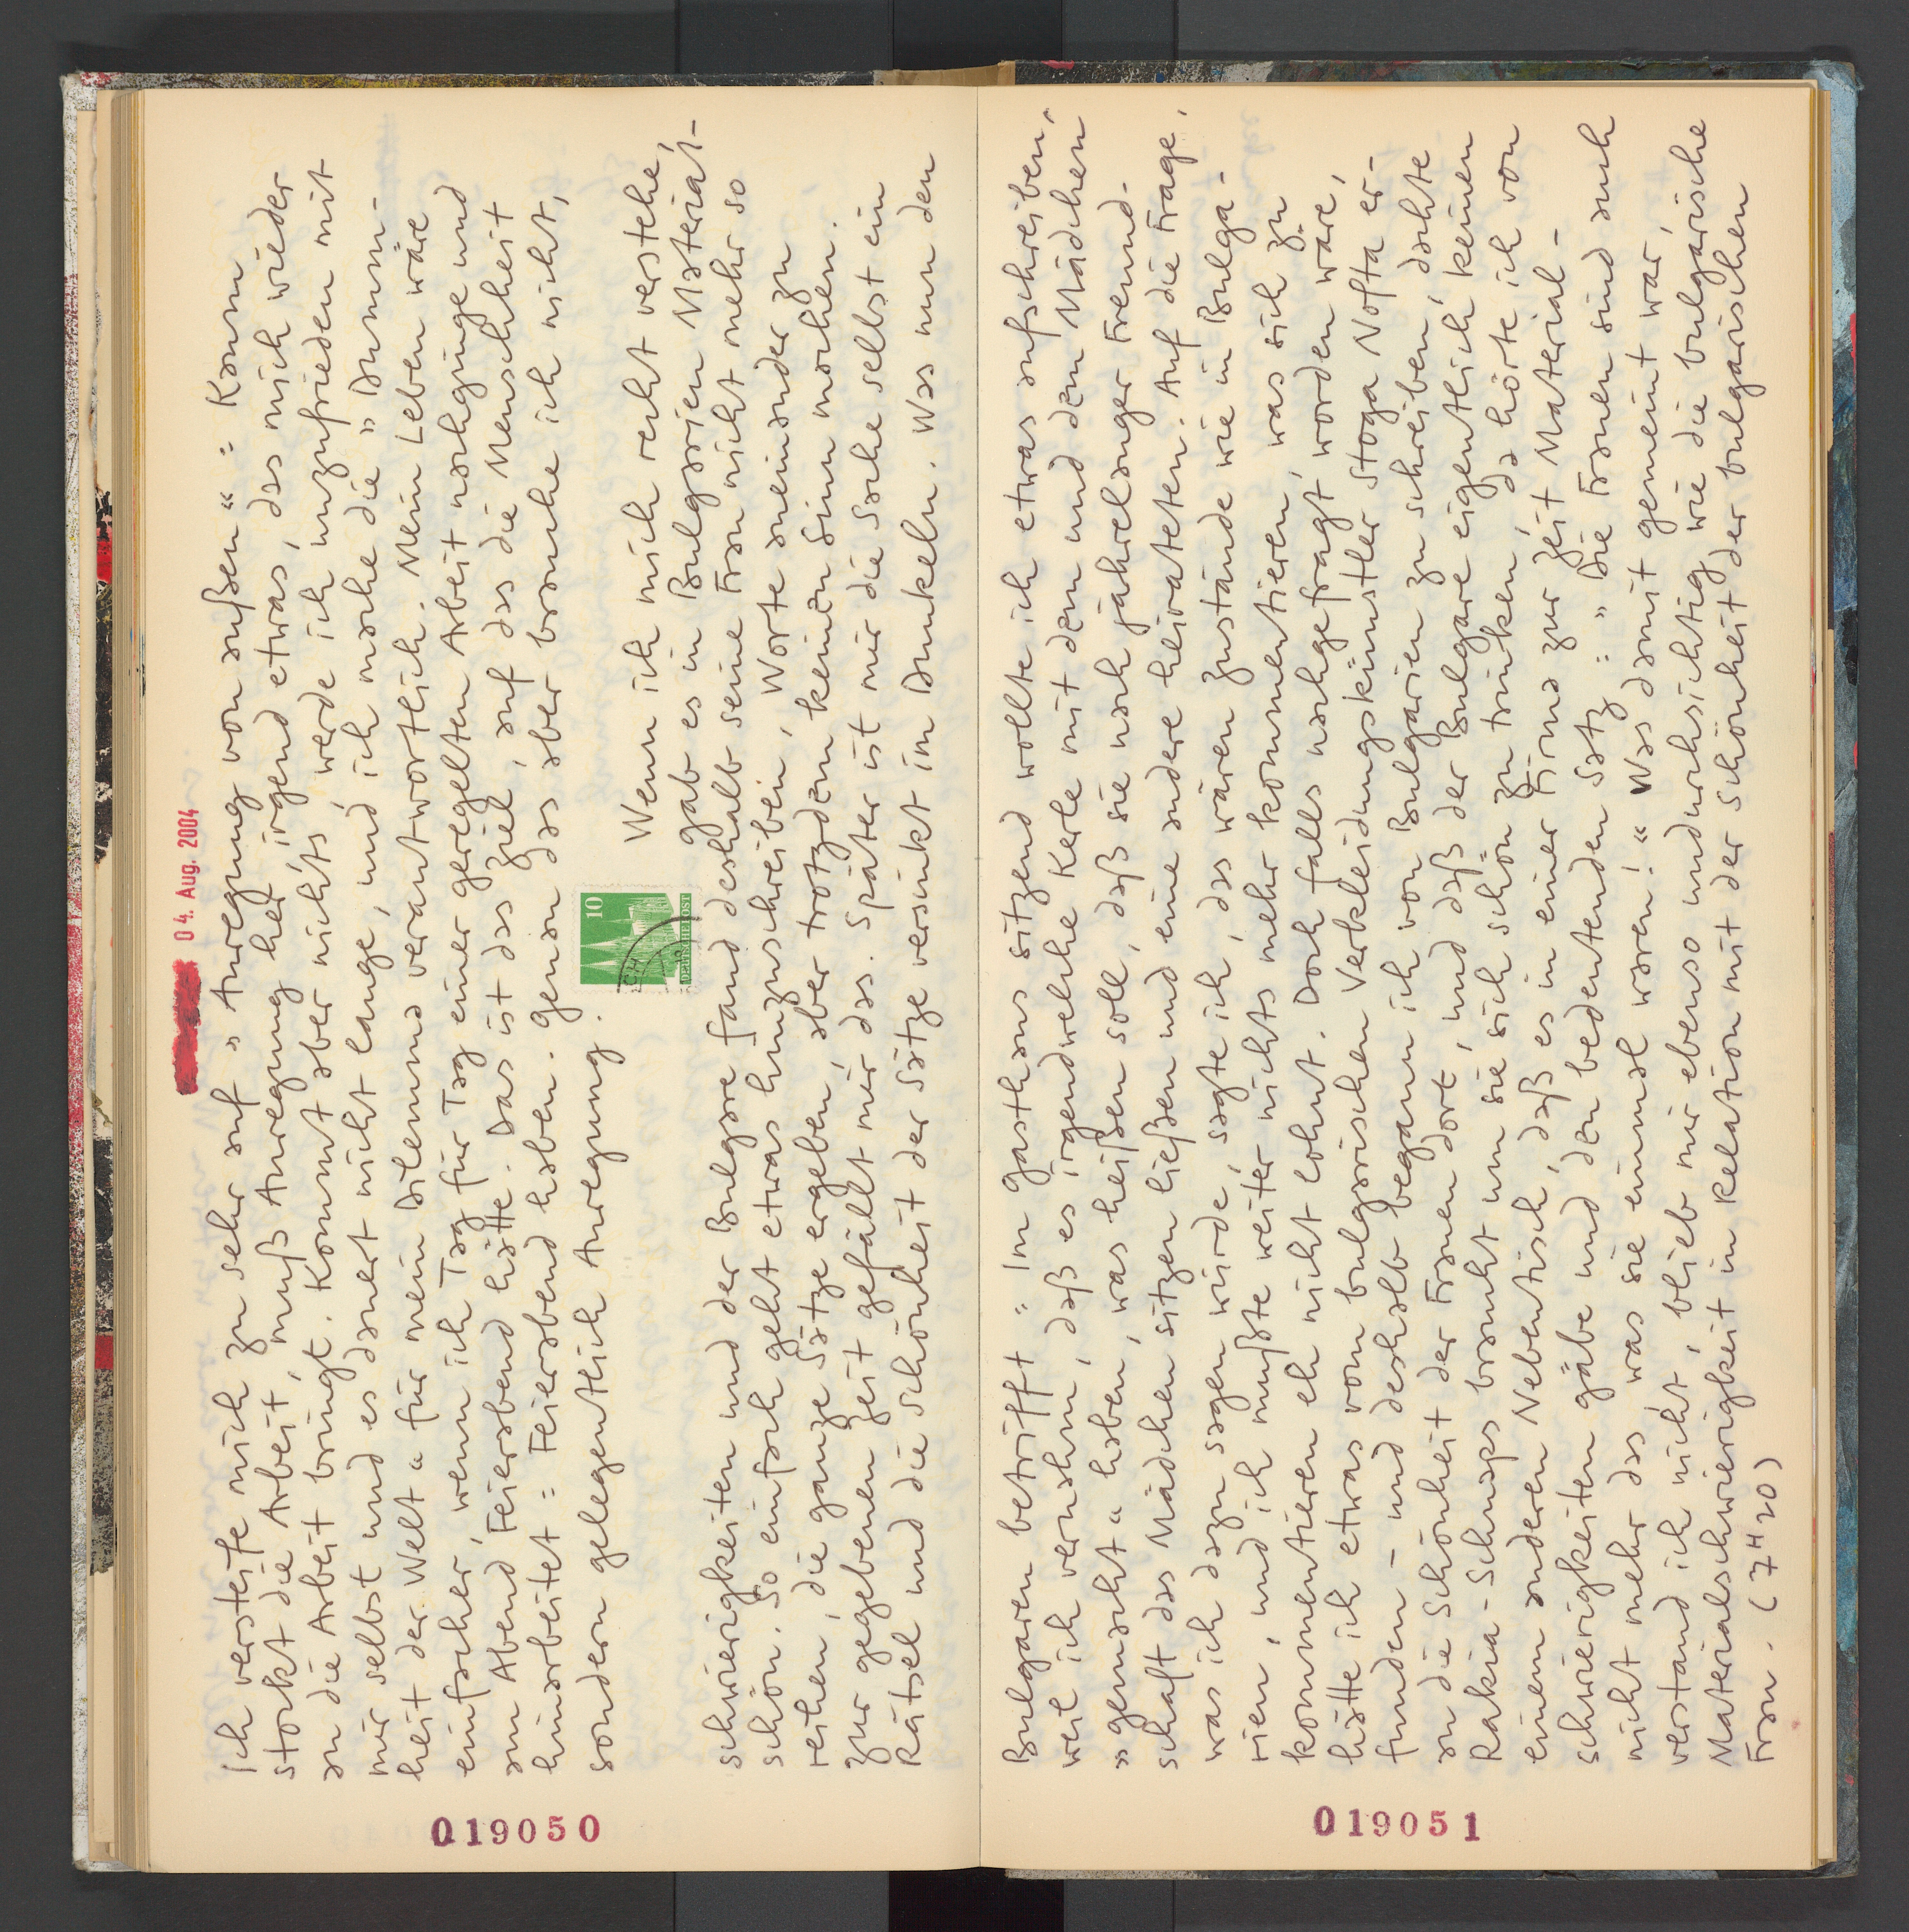 04. Aug. 2004
Ich versteife mich zu sehr auf „Anregung von außen“: Kaum
stockt die Arbeit, muß Anregung her, irgend etwas, das mich wieder
an die Arbeit bringt. Kommt aber nichts, werde ich unzufrieden mit
mir selbst und es dauert nicht lange, und ich mache die „Dumm-
heit der Welt“ für mein Dilemma verantwortlich. Mein Leben wäre
einfacher, wenn ich Tag für Tag einer geregelten Arbeit nachginge und
am Abend Feierabend hätte. Das ist das Ziel, auf das die Menschheit
hinarbeitet: Feierabend haben. Genau das aber brauche ich nicht,
sondern gelegentlich Anregung.
10
DEUTSCHE POST
Wenn ich mich recht verstehe,
gab es in Bulgarien Material-
schwierigkeiten und der Bulgare fand deshalb seine Frau nicht mehr so
schön. So einfach geht etwas hinzuschreiben, Worte aneinander zu
reihen, die ganze Sätze ergeben, aber trotzdem keinen Sinn machen.
Zur gegebenen Zeit gefällt mir das. Später ist mir die Sache selbst ein
Rätsel und die Schönheit der Sätze versinkt im Dunkeln. Was nun den
019050
Bulgaren betrifft: Im Gasthaus sitzend wollte ich etwas aufschreiben,
weil ich vernahm, daß es irgendwelche Kerle mit dem und dem Mädchen
„gemacht“ haben, was heißen soll, daß sie nach jahrelanger Freund-
schaft das Mädchen sitzen ließen und eine andere heirateten. Auf die Frage,
was ich dazu sagen würde, sagte ich, das wären Zustände wie in Bulga-
rien, und ich mußte weiter nichts mehr kommentieren, was sich zu
kommentieren eh nicht lohnt. Doch falls nachgefragt worden wäre,
hätte ich etwas vom bulgarischen Verkleidungskünstler Stoga Nofta er-
funden – und deshalb begann ich von Bulgarien zu schreiben, dachte
an die Schönheit der Frauen dort, und daß der Bulgare eigentlich keinen
Rakia-Schnaps braucht um sie sich schön zu trinken, da hörte ich von
einem anderen Nebentisch, daß es in einer Firma zur Zeit Material-
schwierigkeiten gäbe und den bedeutenden Satz: „Die Frauen sind auch
nicht mehr das was sie einmal waren!“ Was damit gemeint war,
verstand ich nicht, blieb mir ebenso undurchsichtig wie die bulgarische
Materialschwierigkeit in Relation mit der Schönheit der bulgarischen
Frau. (7H20)
019051